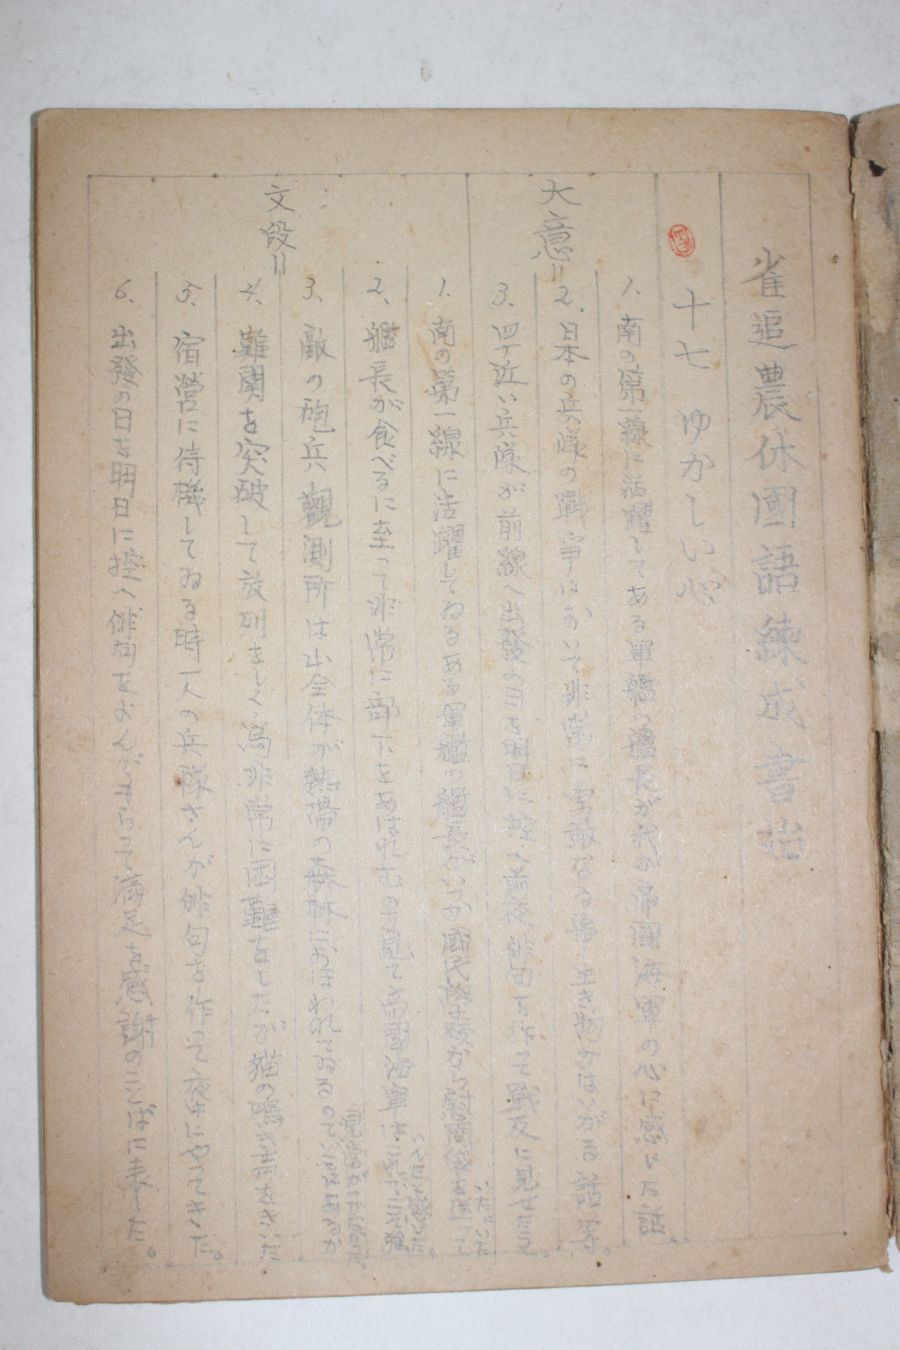 雀追農休國語練成書始
十七 ゆかしい心
大意＝
1. 南の第一線に活躍してある軍艦の艦長が我が帝國海軍の心に感じた話。
2. 日本の兵隊の戰爭において非常に勇敢なる事、生き物かはいがる話等。
3. 四十近い兵隊が前線へ出發の日を明日に控へ前夜俳句を作って戰友に見せたら
文段＝
1. 南の第一線に活躍してゐるある軍艦の艦長がいつか國民學校から慰問袋を送って
いただいた
2. 艦長が食べるに至って非常に部下をあはれむの見て帝國海軍は
3. 敵の砲兵觀測所は山全体が熱帯の森林におほわれてゐるので
見當がつかなかった。
4. 難關を突破して放列をしく為非常に困難をしたが猫の鳴き声をきいた
5. 宿營に待機してゐる時一人の兵隊さんが俳句を作って夜中にやってきた。
6. 出發の日を明日に控へ俳句をよんでもらって満足を感謝のことばに表した。